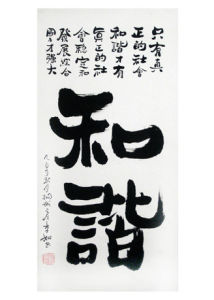 只有真
正的社會
和諧才有
真正的社
會穩定和
發展綜合
國力強大
和諧